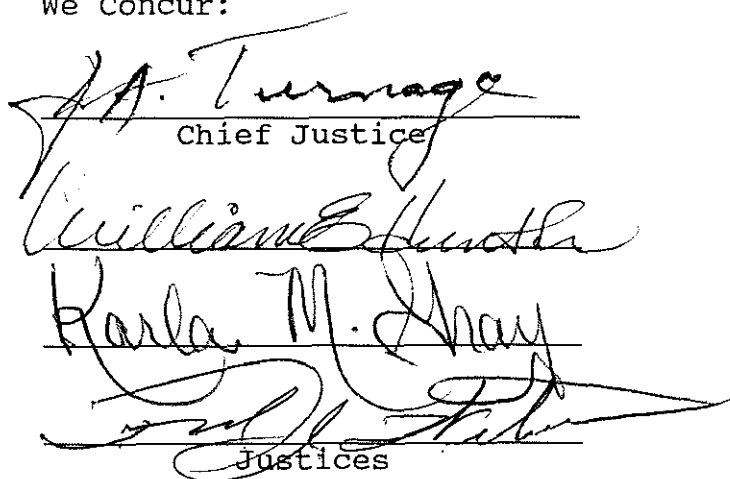 We Concur:
J. A. Turnage
Chief Justice
William E. Hunter
Karla M. Gray
Justices